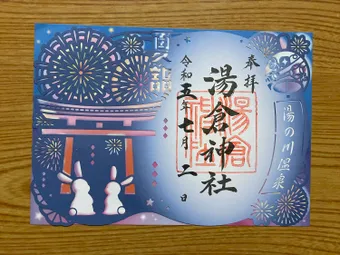 奉拝
湯倉神社
令和五年七月二日
湯の川温泉